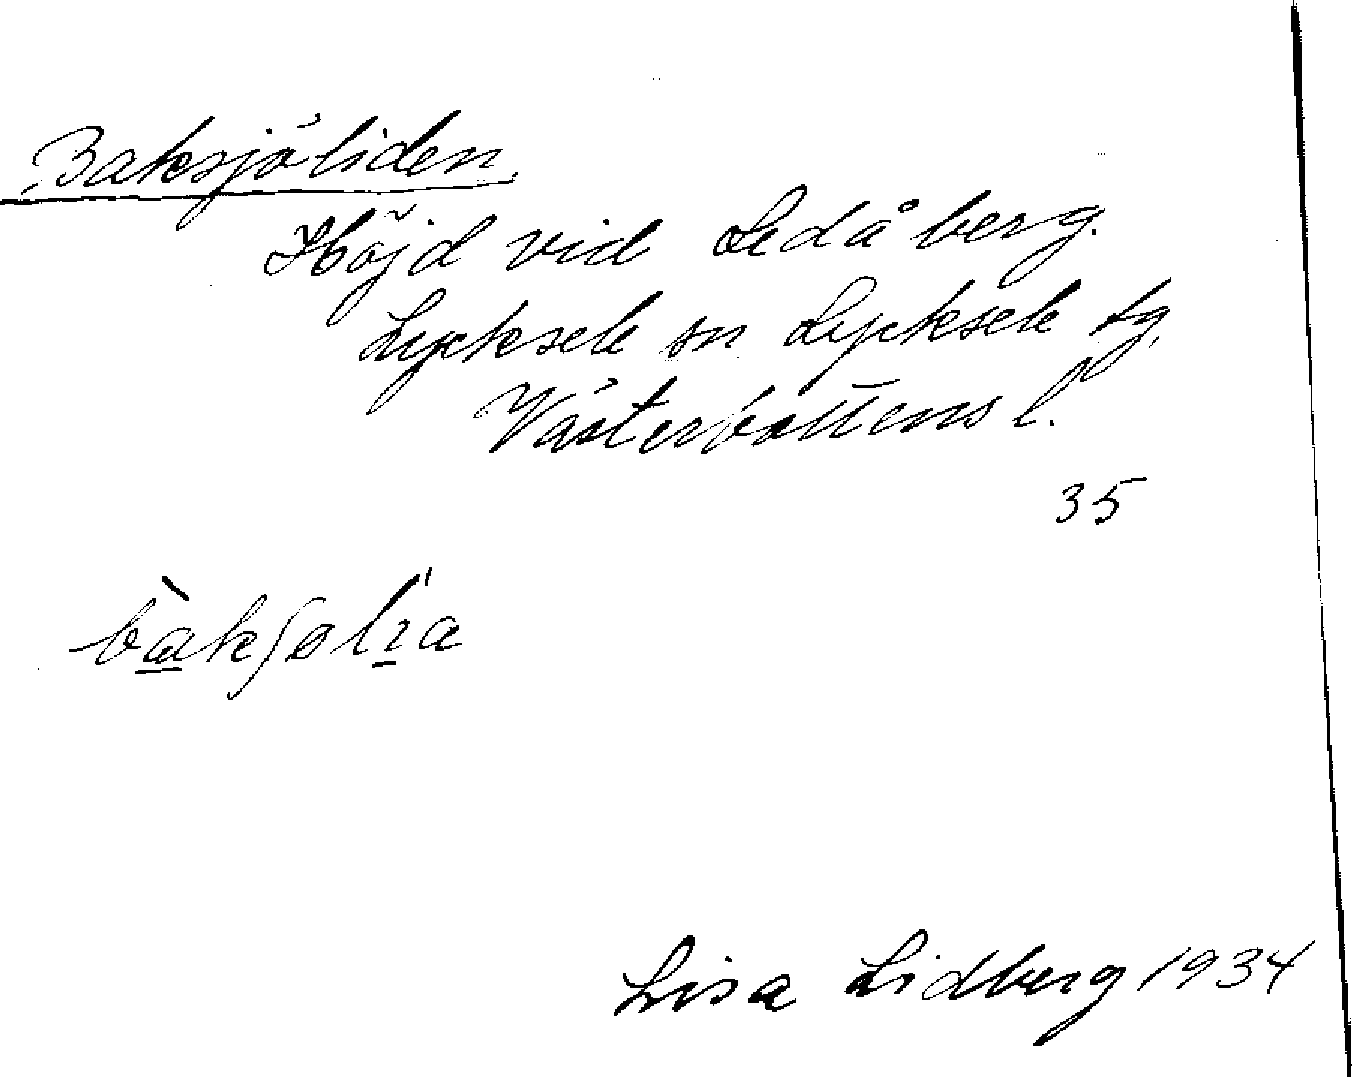 Baksjöliden.
Höjd vid Ledåberg.
Lycksele sn Lycksele tg,
Västerbottens l.
35
Lisa Lidberg 1934